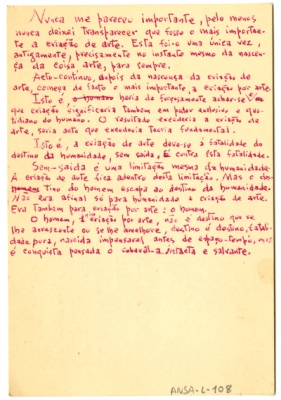 Nunca me pareceu importante, pelo menos
nunca deixei transparecer que fosse o mais importan-
te a criação de arte. Esta foi-o uma única vez,
antigamente, precisamente no instante mesmo da nascen-
ça da coisa arte, para sempre.
Acto-contínuo, depois da nascença da criação de
arte, começa de facto o mais importante, a criação por arte.
Isto é, o homem havia de forçosamente achar-se
que criação significaria também em poder exclusivo o quo-
tidiano do humano. O resultado excederia a criação de
arte, seria acto que excederia teoria fundamental.
Isto é, a criação de arte deve-se à fatalidade do
destino da humanidade, sem saída, E contra Esta fatalidade.
Sem-saída é uma limitação mesma da humanidade.
A criação de arte fica adentro desta limitação. Mas o des-
tino do homem escapa ao destino da humanidade.
Não era afinal só para humanidade a criação de arte.
Era também para criação por arte: o homem.
O homem, criação por arte, não é destino que se
lhe acrescente ou se lhe amelhore, destino é destino, fatali-
dade pura, nascida impensável antes de espaço-tempo, mas
é conquista pensada intacta e salvante.
ANSA-L-108